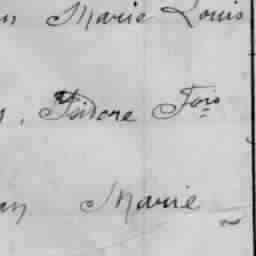 Marie Louis
Isidore Fois
Marie